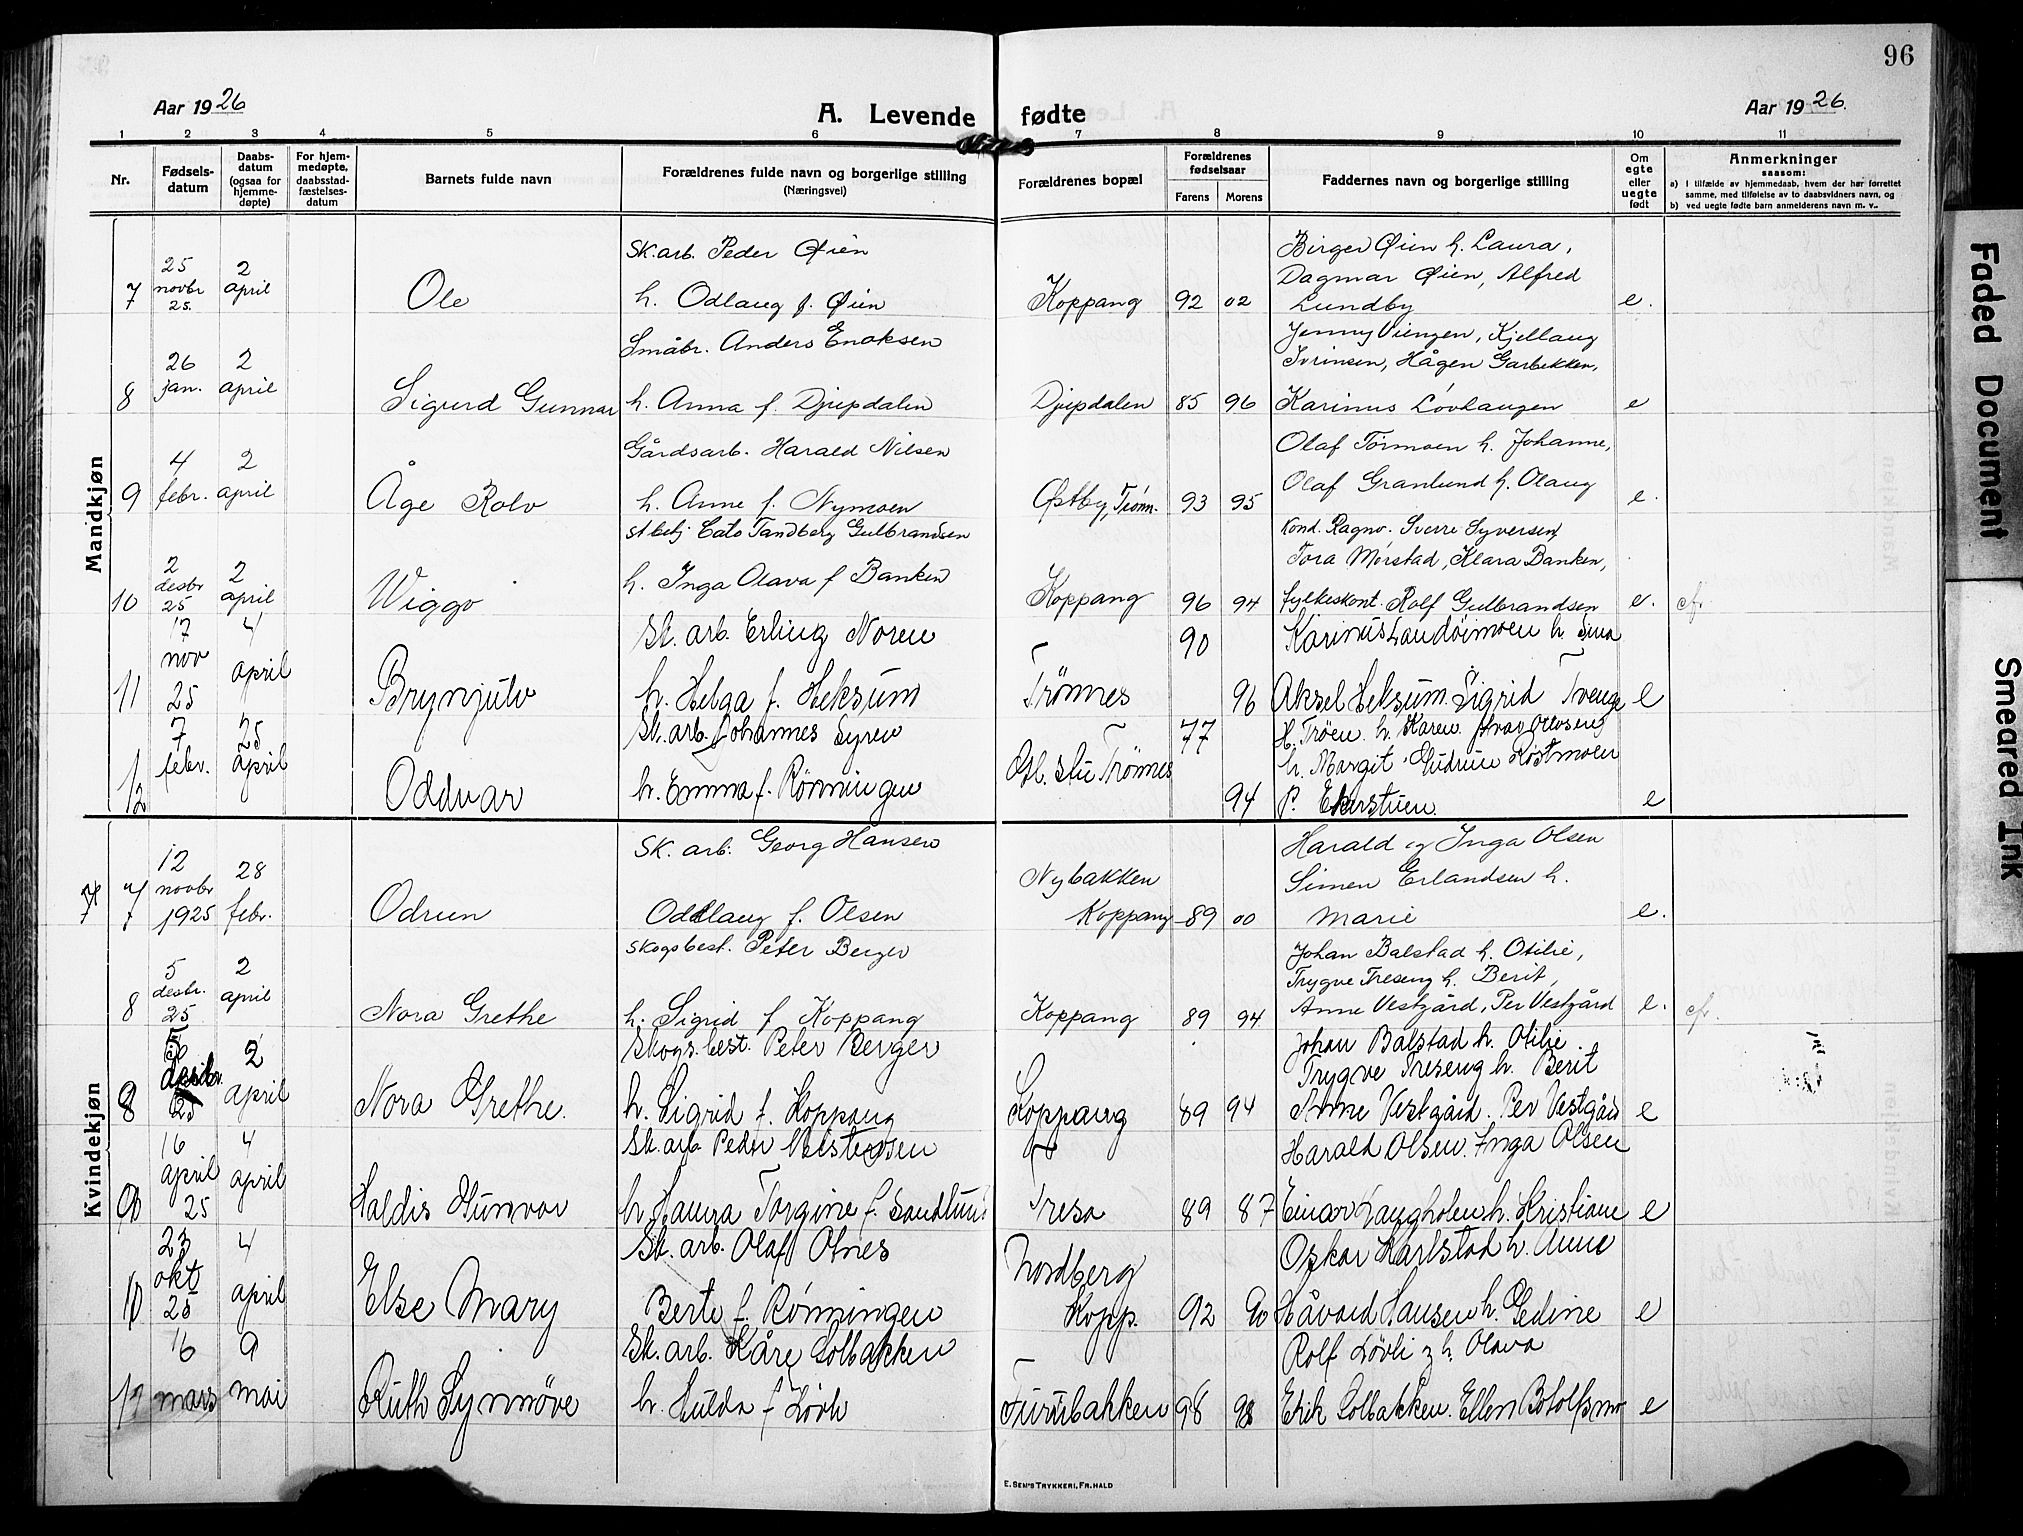 96
Aar 1926
A. Levende fødte
Aar 1926.
1 2 3 4 5 6 7 8 9 10 11
Nr.
Fødsels-
datum
Daabs-
datum
(ogsaa for
hjemme-
døpte)
For hjem-
medøpte,
daabsstad-
fæstelses-
datum
Barnets fulde navn
Forældrenes fulde navn og borgerlige stilling
(Næringsvei)
Forældrenes bopæl
Forældrenes
fødselsaar
Farens Morens
Faddernes navn og borgerlige stilling
Om
egte
eller
uegte
født
Anmerkninger
saasom:
a) I tilfælde av hjemmedaab, hvem der har forrettet
samme, med tilføielse av to daabsvidners navn, og
b) ved uegte fødte barn anmelderens navn m. v.
Mandkjøn
7
25
novbr
25.
2
april
Ole
Sk.arb. Peder Øien
h. Odlaug f. Øien
Koppang
92 02
Birger Øien h. Laura,
Dagmar Øien, Alfred
Lundby
e.
8
26
jan.
2
april
Sigurd Gunnar
Småbr. Anders Enoksen
h. Anna f. Djupdalen
Djupdalen
85 96
Jenny Viengen, Kjellaug
Ivrinsen, Hågen Garbekken,
Karinus Lövhaugen
e
9
4
febr.
2
april
Åge Rolv
Gårdsarb. Harald Nilsen
h. Anne f. Nymoen
Østby, Trönn.
93 95
Olaf Tormoen h. Johanne,
Olaf Granlund h. Olaug
e.
10
2
desbr
25
2
april
Wiggo
st.betj Cato Tandberg Gulbrandsen
h. Inga Olava f Banken
Koppang
96 94
Kond. Ragnv. Sverre Syversen,
Tora Mørstad, Klara Banken,
fylkeskont. Rolf Gulbrandsen
e.
cfr.
11
17
nov
25
4
april
Brynjulv
Sk. arb. Erling Noren
h. Helga f. Heksum
Trönnes
90
96
Karinus Landöimoen h. Sina
Aksel Heksum. Sigrid Tvenge
e
12
7
febr.
25
april
Oddvar
Sk. arb. Johannes Syren
h. Emma f. Rönningen
Øl. stu Trönnes
77
94
H. Tröen. h. Karen. Ottosen
h. Margit. Gudrun Röstmoen
P. Ekerstuen.
e
Kvindekjøn
7
7
12
novbr
1925
28
febr.
Odrun
Sk. arb. Georg Hansen
Oddlaug f. Olsen
Nybakken
Koppang
89 00
Harald og Inga Olsen
Simen Erlandsen h.
Marie
e.
8
5
desbr.
25
2
april
Nora Grethe
Skogsbest. Peter Berger
h. Sigrid f Koppang
Koppang
89 94
Johan Balstad h. Otilie,
Trygve Treseng h. Berit,
Anne Vestgård, Per Vestgård
e.
cfr.
8
5
25
2
april
Nora Grethe.
Skogs. best. Peter Berger
h. Sigrid f. Koppang
Koppang
89 94
Johan Balstad h. Otilie.
Trygve Treseng h. Berit
Anne Vestgård. Per Vestgård
e
9
16
april
25
4
april
Haldis Gunvor
Sk. arb. Peder
h. Laura Torgine f. Sandlund
Tresa
89 87
Harald Olsen. Inga Olsen
Einar Langholen h. Kristiane
e
10
23
okt
25
4
april
Else Mary
Sk. arb. Olaf Otnes
Berte f. Rönningen
Nordberg
Kopp.
92 90
Oskar Karlstad h. Anne
Håvard Hansen h. Gedine
e
16
mars
9
mai
Ruth Synnöve
Sk. arb. Kåre Solbakken
h. Hulda f Lövli
Furubakken
98 98
Rolf Lövli og h. Olava
Erik Solbakken. Ellen Botolfsmo
e
E. SEM'S TRYKKERI, FR.HALD
Faded Document
Smeared Ink